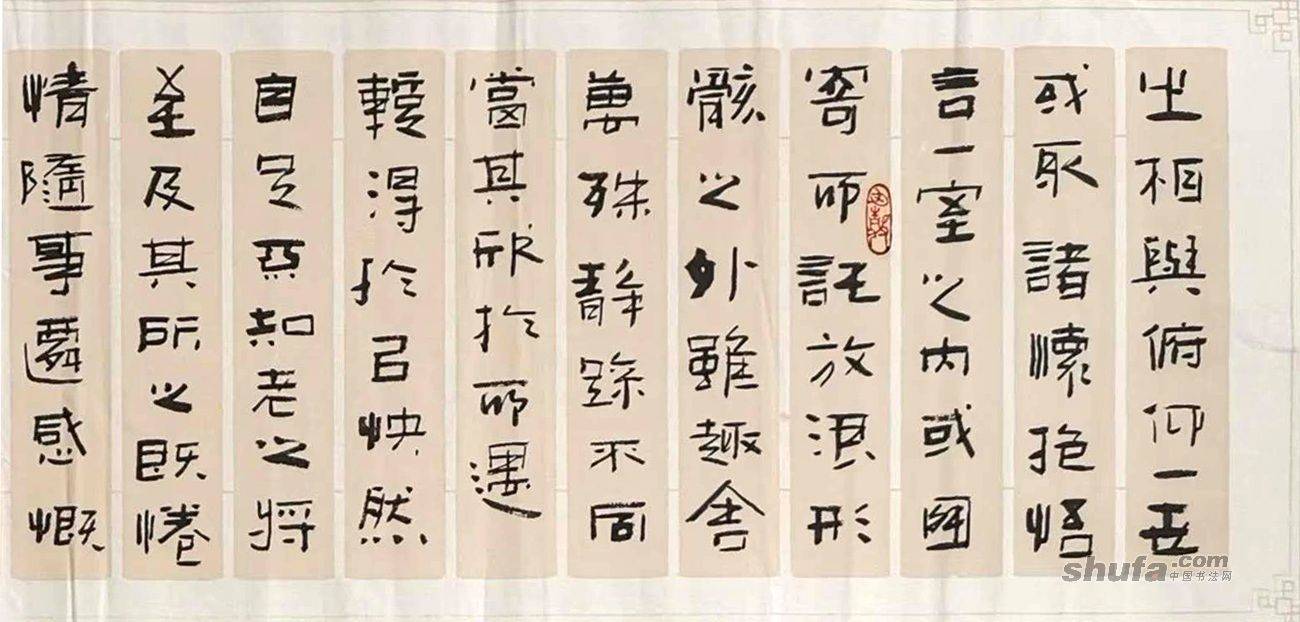 之相與俯仰一世
或取諸懷抱悟
言一室之內或因
寄所託放浪形
骸之外雖趣舍
萬殊靜躁不同
當其欣於所遇
暫得於己快然
自足不知老之將
至及其所之既惓
情隨事遷感慨
shufa.com
中国书法网